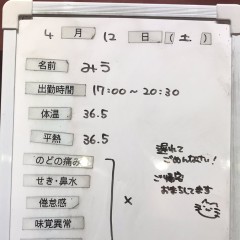 4 月 12 日 (土)
名前 みう
出勤時間 17:00~20:30
体温 36.5
平熱 36.5
のどの痛み
せき・鼻水
倦怠感
味覚異常
×
遅れて
ごめんなさい!
ご帰宅
お待ちしてます